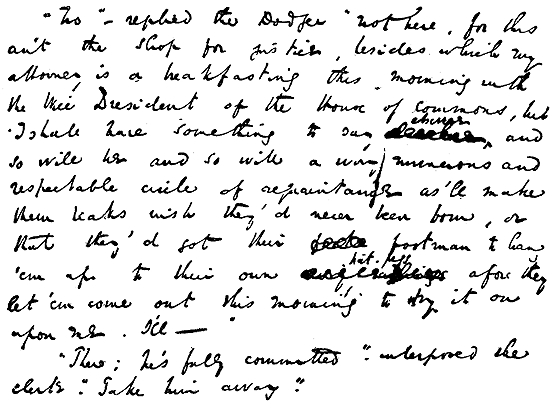 "No" – replied the Dodger "not here, for this
ain't the shop for justice, besides which my
attorney is a breakfasting this morning with
the Wice President of the House of Commons, but
I shall have something to say and
so will he and so will a wery numerous and
respectable circle of acquaintance as'll make
them beaks wish they'd never been born, or
that they'd got their footman to hang
'em up to their own hat-pegs afore they
let 'em come out this morning to try it on
upon me. I'll — "
"There; he's fully committed". interposed the
clerk". Take him away".